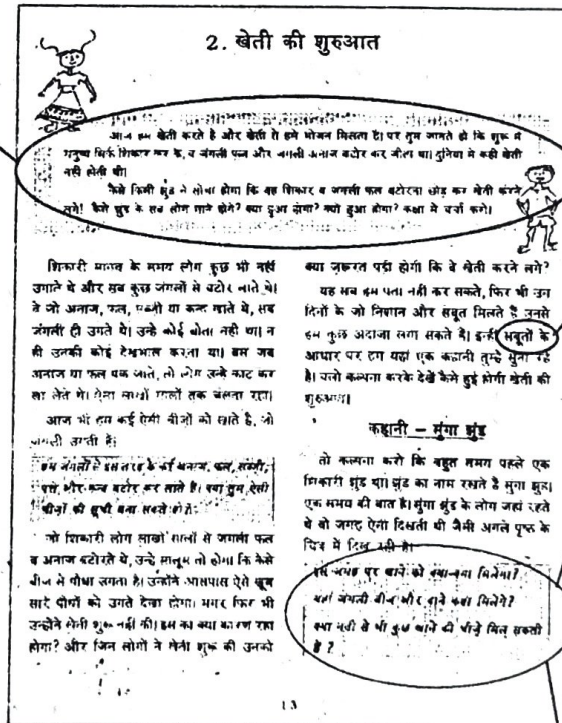 2. खेती की शुरुआत
आज हम खेती करते है और खेती से हमे भोजन मिलता है। पर तुम जानते हो कि शुरू में
मनुष्य सिर्फ शिकार कर के, व जंगली फल और जंगली अनाज बटोर कर जीता था। दुनिया मे कही खेती
नही होती थी।
कैसे किसी झुंड ने सोचा होगा कि वह शिकार व जगली फल बटोरना छोड़ कर खेती करने
लगे! कैसे झुंड के सब लोग माने होगे? क्या हुआ होगा? क्यो हुआ होगा? कक्षा मे चर्चा करो।
शिकारी मानव के समय लोग कुछ भी नहीं
उगाते थे और सब कुछ जंगलों से बटोर लाते थे।
वे जो अनाज, फल, सब्ज़ी या कन्द खाते थे, सब
जंगली ही उगते थे। उन्हे कोई बोता नही था। न
ही उनकी कोई देखभाल करता था। बस जब
अनाज या फल पक जाते, तो लोग उन्हे काट कर
खा लेते थे। ऐसा लाखों सालों तक चलता रहा।
आज भी हम कई ऐसी चीज़ों को खाते है, जो
जंगली उगती है।
हम जंगलों से इस तरह के कई अनाज, फल, सब्ज़ी,
पत्ते, और कन्द बटोर कर लाते हैं। क्या तुम ऐसी
चीज़ों की सूची बना सकते हो?
जो शिकारी लोग लाखों सालों से जंगली फल
व अनाज बटोरते थे, उन्हे मालूम तो होगा कि कैसे
बीज से पौधा उगता है। उन्होंने आसपास ऐसे खूब
सारे पौधों को उगते देखा होगा। मगर फिर भी
उन्होंने खेती शुरू नही की। इस का क्या कारण रहा
होगा? और जिन लोगों ने खेती शुरू की उनको
क्या ज़रूरत पड़ी होगी कि वे खेती करने लगे?
यह सब हम पता नही कर सकते, फिर भी उन
दिनों के जो निशान और सबूत मिलते है उनसे
हम कुछ अंदाजा लगा सकते है। इन्ही सबूतों के
आधार पर हम यहां एक कहानी तुम्हे सुना रहे
है। चलो कल्पना करके देखें कैसे हुई होगी खेती की
शुरुआत।
कहानी – मुंगा झुंड
तो कल्पना करो कि बहुत समय पहले एक
शिकारी झुंड था। झुंड का नाम रखते है मुंगा झुंड।
एक समय की बात है। मुंगा झुंड के लोग जहां रहते
थे वो जगह ऐसी दिखती थी जैसी अगले पृष्ठ के
चित्र में दिख रही है।
इस जगह पर खाने को क्या-क्या मिलेगा?
यहां जंगली बीज और दाने कहां मिलेंगे?
क्या नदी से भी कुछ खाने की चीज़ें मिल सकती
है?
13